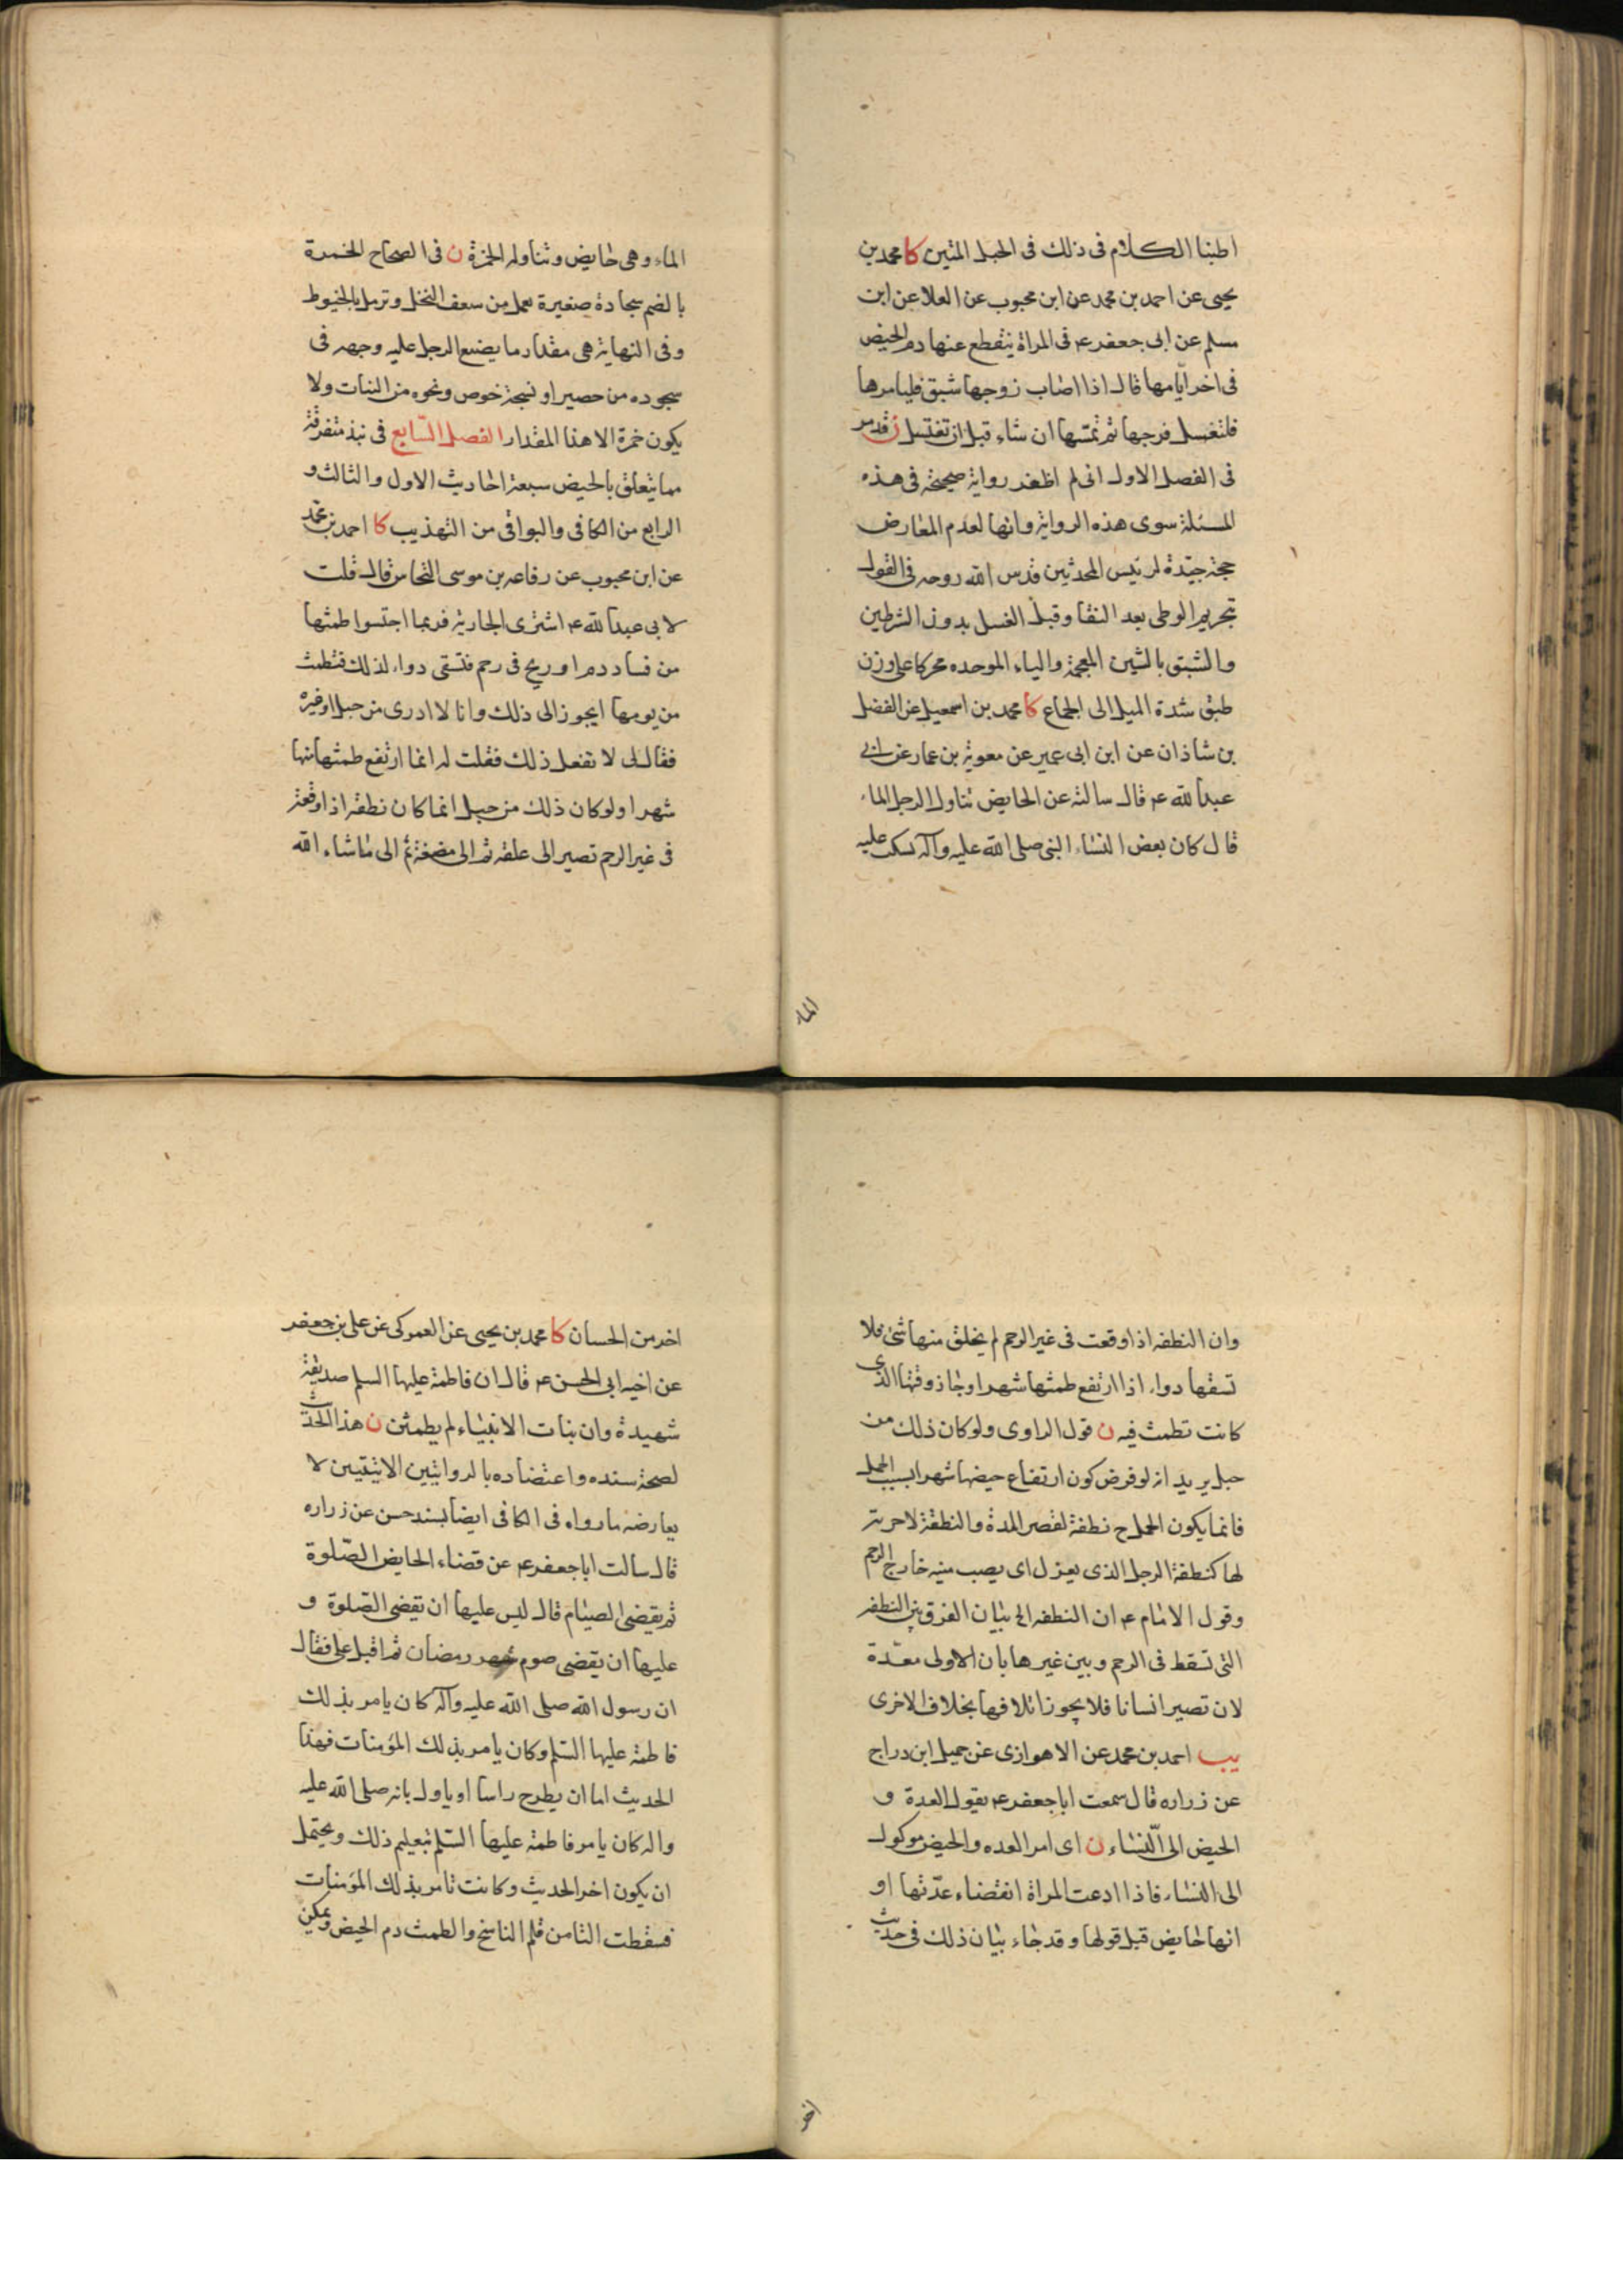 اطبنا الكلام فى ذلك فى الحبل المتين كا محمد بن
يحيى عن احمد بن محمد عن ابن محبوب عن العلا عن ابن
مسلم عن ابى جعفر ع فى المراة ينقطع عنها دم الحيض
فى اخر ايامها قال اذا اصاب زوجها شبق فليامرها
فلتغسل فرجها ثم تمسها ان شاء قبل ان تغتسل ن قد مر
فى الفصل الاول انى لم اظفر رواية صحيحة فى هذه
المسئلة سوى هذه الرواية وانها لعدم المعارض
حجة جيّدة لرئيس المحدثين قدس الله روحه فى القول
بتحريم الوطى بعد النقا وقبل الغسل بدون الشرطين
والشبق بالشين المعجمة والباء الموحده محركا على وزن
طبق شدة الميل الى الجماع كا محمد بن اسمعيل عن الفضل
بن شاذان عن ابن ابى عمير عن معوية بن عمار عن ابى
عبد الله ع قال سالته عن الحايض تناول الرجل الماء
قال كان بعض النساء النبى صلى الله عليه وآله تسكب عليه
الماء
الماء وهى حايض وتناوله الخمرة ن فى الصحاح الخمرة
بالضم سجادة صغيرة تعمل من سعف النخل وترمل بالخيوط
وفى النهاية هى مقدار ما يضع الرجل عليه وجهه فى
سجوده من حصير او نسجة خوص ونحوه من النبات ولا
يكون خمرة الا هذا المقدار الفصل السّابع فى نبذ متفرقة
مما يتعلق بالحيض سبعة احاديث الاول والثالث و
الرابع من الكافى والبواقى من التهذيب كا احمد بن محمد
عن ابن محبوب عن رفاعه بن موسى النخاس قال قلت
لابى عبد الله ع اشترى الجارية فربما احتبسوا طمثها
من فساد دم او ريح فى رحم فتسقى دواء لذلك فتطمث
من يومها ايجوز الى ذلك وانا لا ادرى من حبل او غيره
فقال لى لا تفعل ذلك فقلت له انما ارتفع طمثها منها
شهرا ولو كان ذلك من حبل انما كان نطفه اذا وقعت
فى غير الرحم تصير الى علقه ثم الى مضغة ثم الى ما شاء الله
وان النطفه اذا وقعت فى غير الرحم لم يخلق منها شئ فلا
تسقها دواء اذا ارتفع طمثها شهرا وجاز وقتها الذى
كانت تطمث فيه ن قول الراوى ولو كان ذلك من
حبل يريد انه لو فرض كون ارتفاع حيضها شهرا بسبب الحمل
فانما يكون الحمل ح نطفة لقصر المدة والنطفة لا حرمة
لها كنطفة الرجل الذى يعزل اى يصب منيه خارج الرحم
وقول الامام ع ان النطفه الخ بيان الفرق بين النطفه
التى تسقط فى الرحم وبين غيرها بان الاولى معدّة
لان تصير انسانا فلا يجوز اتلافها بخلاف الاخرى
يب احمد بن محمد عن الاهوازى عن جميل ابن دراج
عن زراره قال سمعت ابا جعفر ع يقول العدة و
الحيض الى النساء ن اى امر العده والحيض موكول
الى النساء فاذا ادعت المراة انقضاء عدّتها او
انها حايض قبل قولها وقد جاء بيان ذلك فى حديث
اخر
اخر من الحسان كا محمد بن يحيى عن العمركى عن على بن جعفر
عن اخيه ابى الحسن ع قال ان فاطمة عليها السلم صديقة
شهيدة وان بنات الانبياء لم يطمثن ن هذا الحديث
لصحة سنده واعتضاده بالروايتين الاتيتين لا
يعارضه ما رواه فى الكافى ايضا بسند حسن عن زراره
قال سالت ابا جعفر ع عن قضاء الحايض الصّلوة
ثم يقضى الصيام قال ليس عليها ان تقضى الصّلوة و
عليها ان يقضى صوم شهر رمضان ثم اقبل على فقال
ان رسول الله صلى الله عليه وآله كان يامر بذلك
فاطمة عليها السّلم وكان يامر بذلك المؤمنات فهذا
الحديث اما ان يطرح راسا او ياول بانه صلى الله عليه
واله كان يامر فاطمة عليها السّلم بتعليم ذلك ويحتمل
ان يكون اخر الحديث وكانت تامر بذلك المؤمنات
فسقطت التا من قلم الناسخ والطمث دم الحيض ويمكن